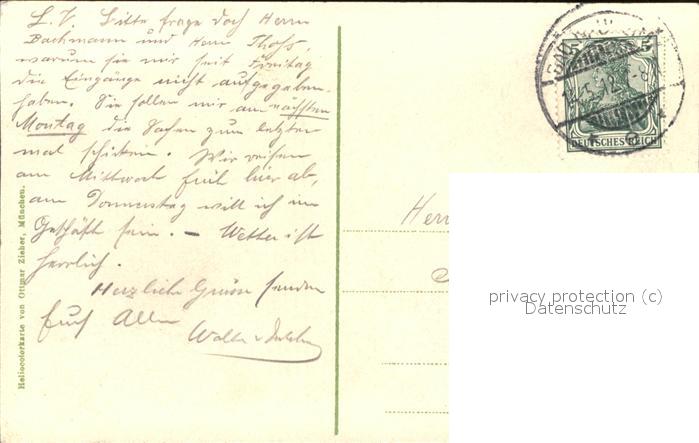 L. V. Bitte frage doch Herrn
Bachmann und Herrn Thoss,
warum sie mir seit Freitag
die Eingänge nicht aufgegeben
haben. Sie sollen mir am nächsten
Montag die Sachen zum letzten
mal schicken. Wir reisen
am Mittwoch früh hier ab,
am Donnerstag will ich im
Geschäft sein. – Wetter ist
herrlich.
Herzliche Grüsse senden
Euch Allen
Walter
Heliocolorkarte von Ottmar Zieher, München.
5 5
DEUTSCHES REICH
Herrn
privacy protection (c)
Datenschutz